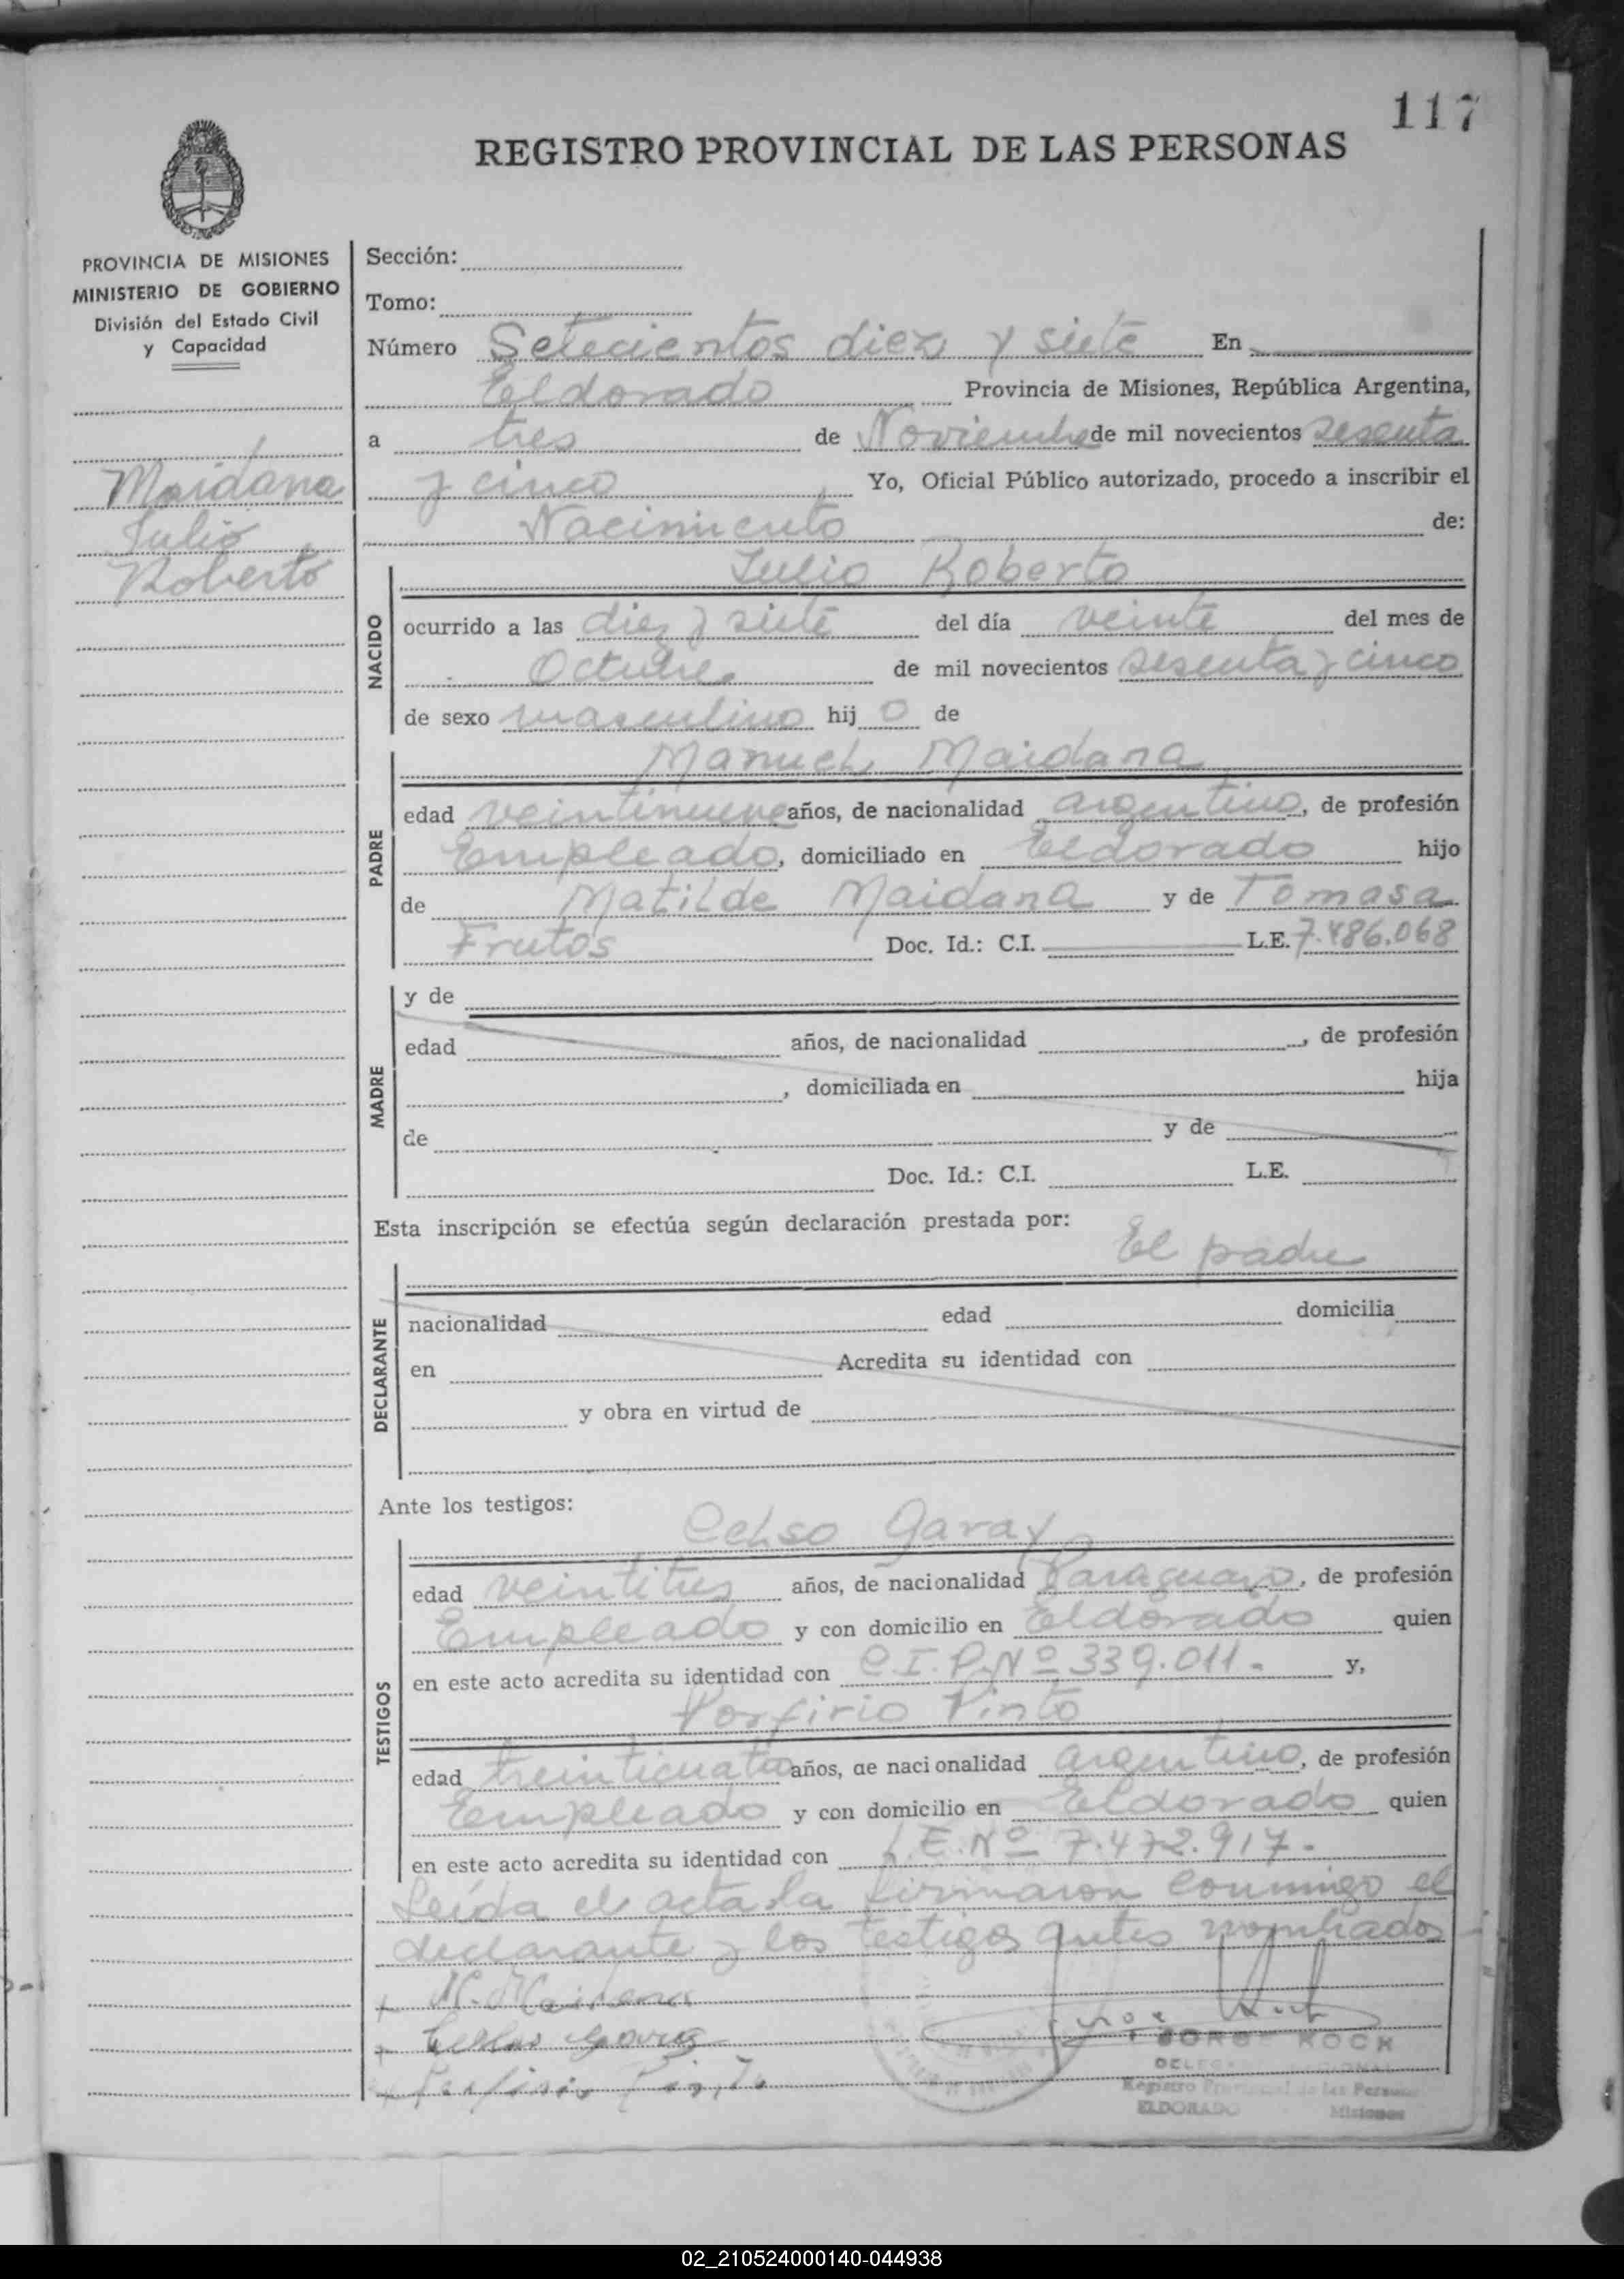 117
REGISTRO PROVINCIAL DE LAS PERSONAS
PROVINCIA DE MISIONES
MINISTERIO DE GOBIERNO
División del Estado Civil
y Capacidad
Maidana
Julio
Roberto
Sección:
Tomo:
Número Setecientos diez y siete En
Eldorado Provincia de Misiones, República Argentina,
a tres de Noviembre de mil novecientos sesenta
y cinco Yo, Oficial Público autorizado, procedo a inscribir el
Nacimiento de:
NACIDO
Julio Roberto
ocurrido a las diez y siete del día veinte del mes de
Octubre de mil novecientos sesenta y cinco
de sexo masculino hij o de
PADRE
Manuel Maidana
edad veintinueve años, de nacionalidad argentino, de profesión
Empleado, domiciliado en Eldorado hijo
de Matilde Maidana y de Tomasa
Frutos Doc. Id.: C.I. L.E. 7.486.068
MADRE
y de
edad años, de nacionalidad , de profesión
, domiciliada en hija
de y de
Doc. Id.: C.I. L.E.
Esta inscripción se efectúa según declaración prestada por:
El padre
DECLARANTE
nacionalidad edad domicilia
en Acredita su identidad con
y obra en virtud de
Ante los testigos:
TESTIGOS
Celso Garay
edad veintitres años, de nacionalidad Paraguayo, de profesión
Empleado y con domicilio en Eldorado quien
en este acto acredita su identidad con C.I.P.Nº 339.011.- y,
Porfirio Pinto
edad treinticuatro años, de nacionalidad argentino, de profesión
Empleado y con domicilio en Eldorado quien
en este acto acredita su identidad con L.E.Nº 7.472.917.-
Leída el acta la firmaron conmigo el
declarante y los testigos antes nombrados
M. Maidana
Celso Garay
Porfirio Pinto
KOCH
Registro Provincial de las Personas
ELDORADO Misiones
02_210524000140-044938